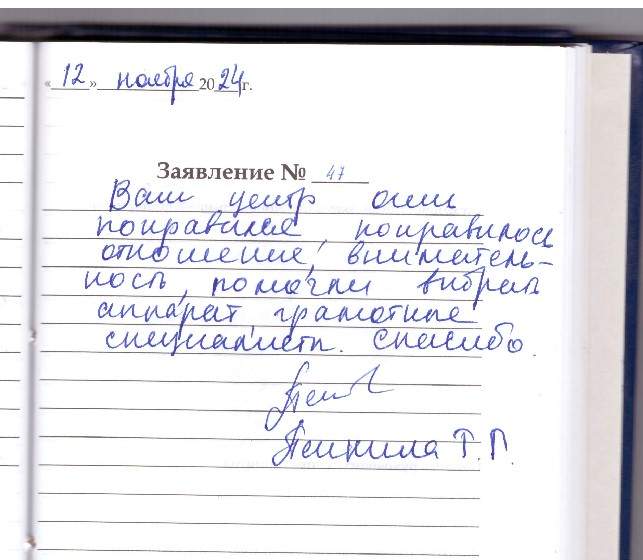 «12» ноября 2024г.
Заявление № 47
Ваш центр очень
понравился, понравилось
отношение, вниматель-
ность, помогли выбрать
аппарат, грамотные
специалисты. Спасибо.
Т. П.